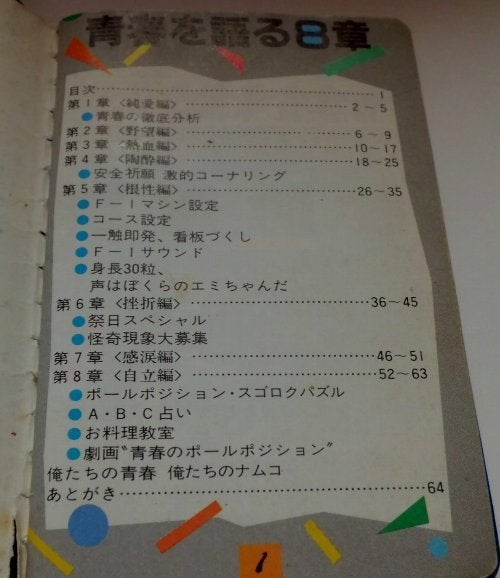 青春を語る8章
目次……………………………………1
第1章〈純愛編〉………………………2～5
●青春の徹底分析
第2章〈野望編〉………………………6～9
第3章〈熱血編〉………………………10～17
第4章〈陶酔編〉………………………18～25
●安全祈願 激的コーナリング
第5章〈根性編〉………………………26～35
●F－Iマシン設定
●コース設定
●一触即発、看板づくし
●F－Iサウンド
●身長30粒、
声はぼくらのエミちゃんだ
第6章〈挫折編〉………………………36～45
●祭日スペシャル
●怪奇現象大募集
第7章〈感涙編〉………………………46～51
第8章〈自立編〉………………………52～63
●ポールポジション・スゴロクパズル
●A・B・C占い
●お料理教室
●劇画〝青春のポールポジション〟
俺たちの青春 俺たちのナムコ
あとがき………………………………64
1